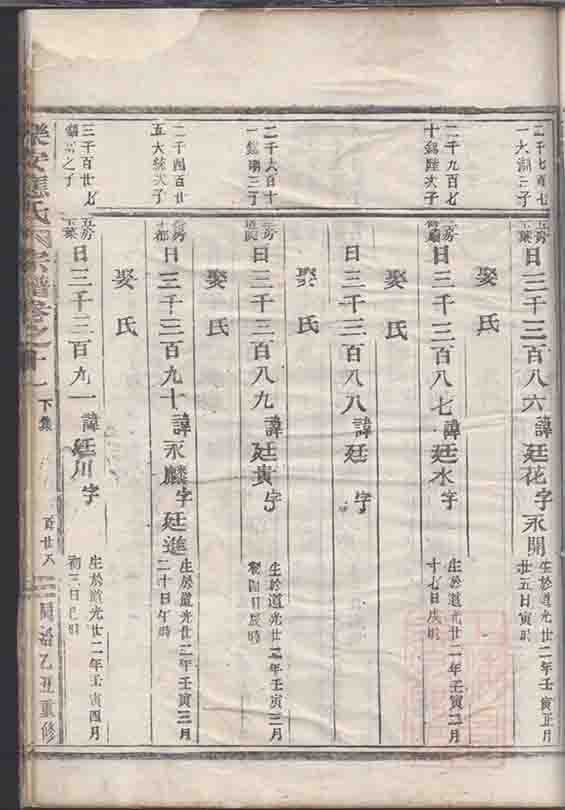 一大湖三子
日三千三百八六諱廷花字永開
生於道光廿二年壬寅正月
廿五日寅時
娶氏
二千九百七
十錦陸次子
日三千三百八七諱廷水字
生於道光廿二年壬寅二月
十七日辰時
娶氏
日三千三百八八諱廷 字
娶氏
二千六百十
日三千三百八九諱廷貴字
生於道光廿二年壬寅二月
初四日辰時
娶氏
二千四百廿
五大統次子
日三千三百九十諱永麟字廷進
生於道光廿二年壬寅三月
二十日午時
娶氏
三千百廿七
日三千三百九一諱廷川字
生於道光廿二年壬寅四月
初三日 時
樂安 氏 宗譜卷之十
下集
百廿六
同治乙丑重修